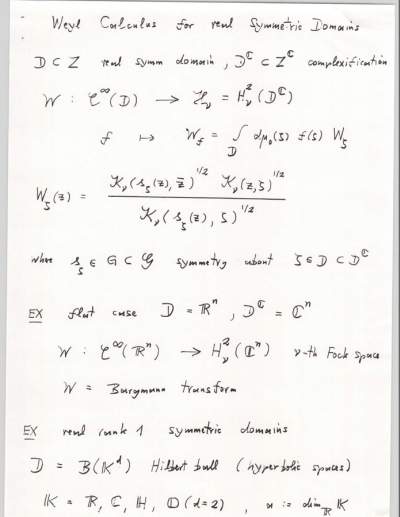 Weyl Calculus for real Symmetric Domains
D ⊂ Z real symm domain, D^ℂ ⊂ Z^ℂ complexification
W : C^∞(D) → H_ν = H_ν^2(D^ℂ)
f ↦ W_f = ∫_D dμ_0(ζ) f(ζ) W_ζ
W_ζ(z) = K_ν(s_ζ(z), z̄)^{1/2} K_ν(z,ζ)^{1/2} / K_ν(s_ζ(z), ζ)^{1/2}
where s_ζ ∈ G ⊂ 𝒢 symmetry about ζ ∈ D ⊂ D^ℂ
EX flat case D = ℝ^n, D^ℂ = ℂ^n
W : C^∞(ℝ^n) → H_ν^2(ℂ^n) ν-th Fock space
W = Bargmann transform
EX real rank 1 symmetric domains
D = B(𝕂^d) Hilbert ball (hyperbolic spaces)
𝕂 = ℝ, ℂ, ℍ, 𝕆 (d=2), a := dim_ℝ 𝕂